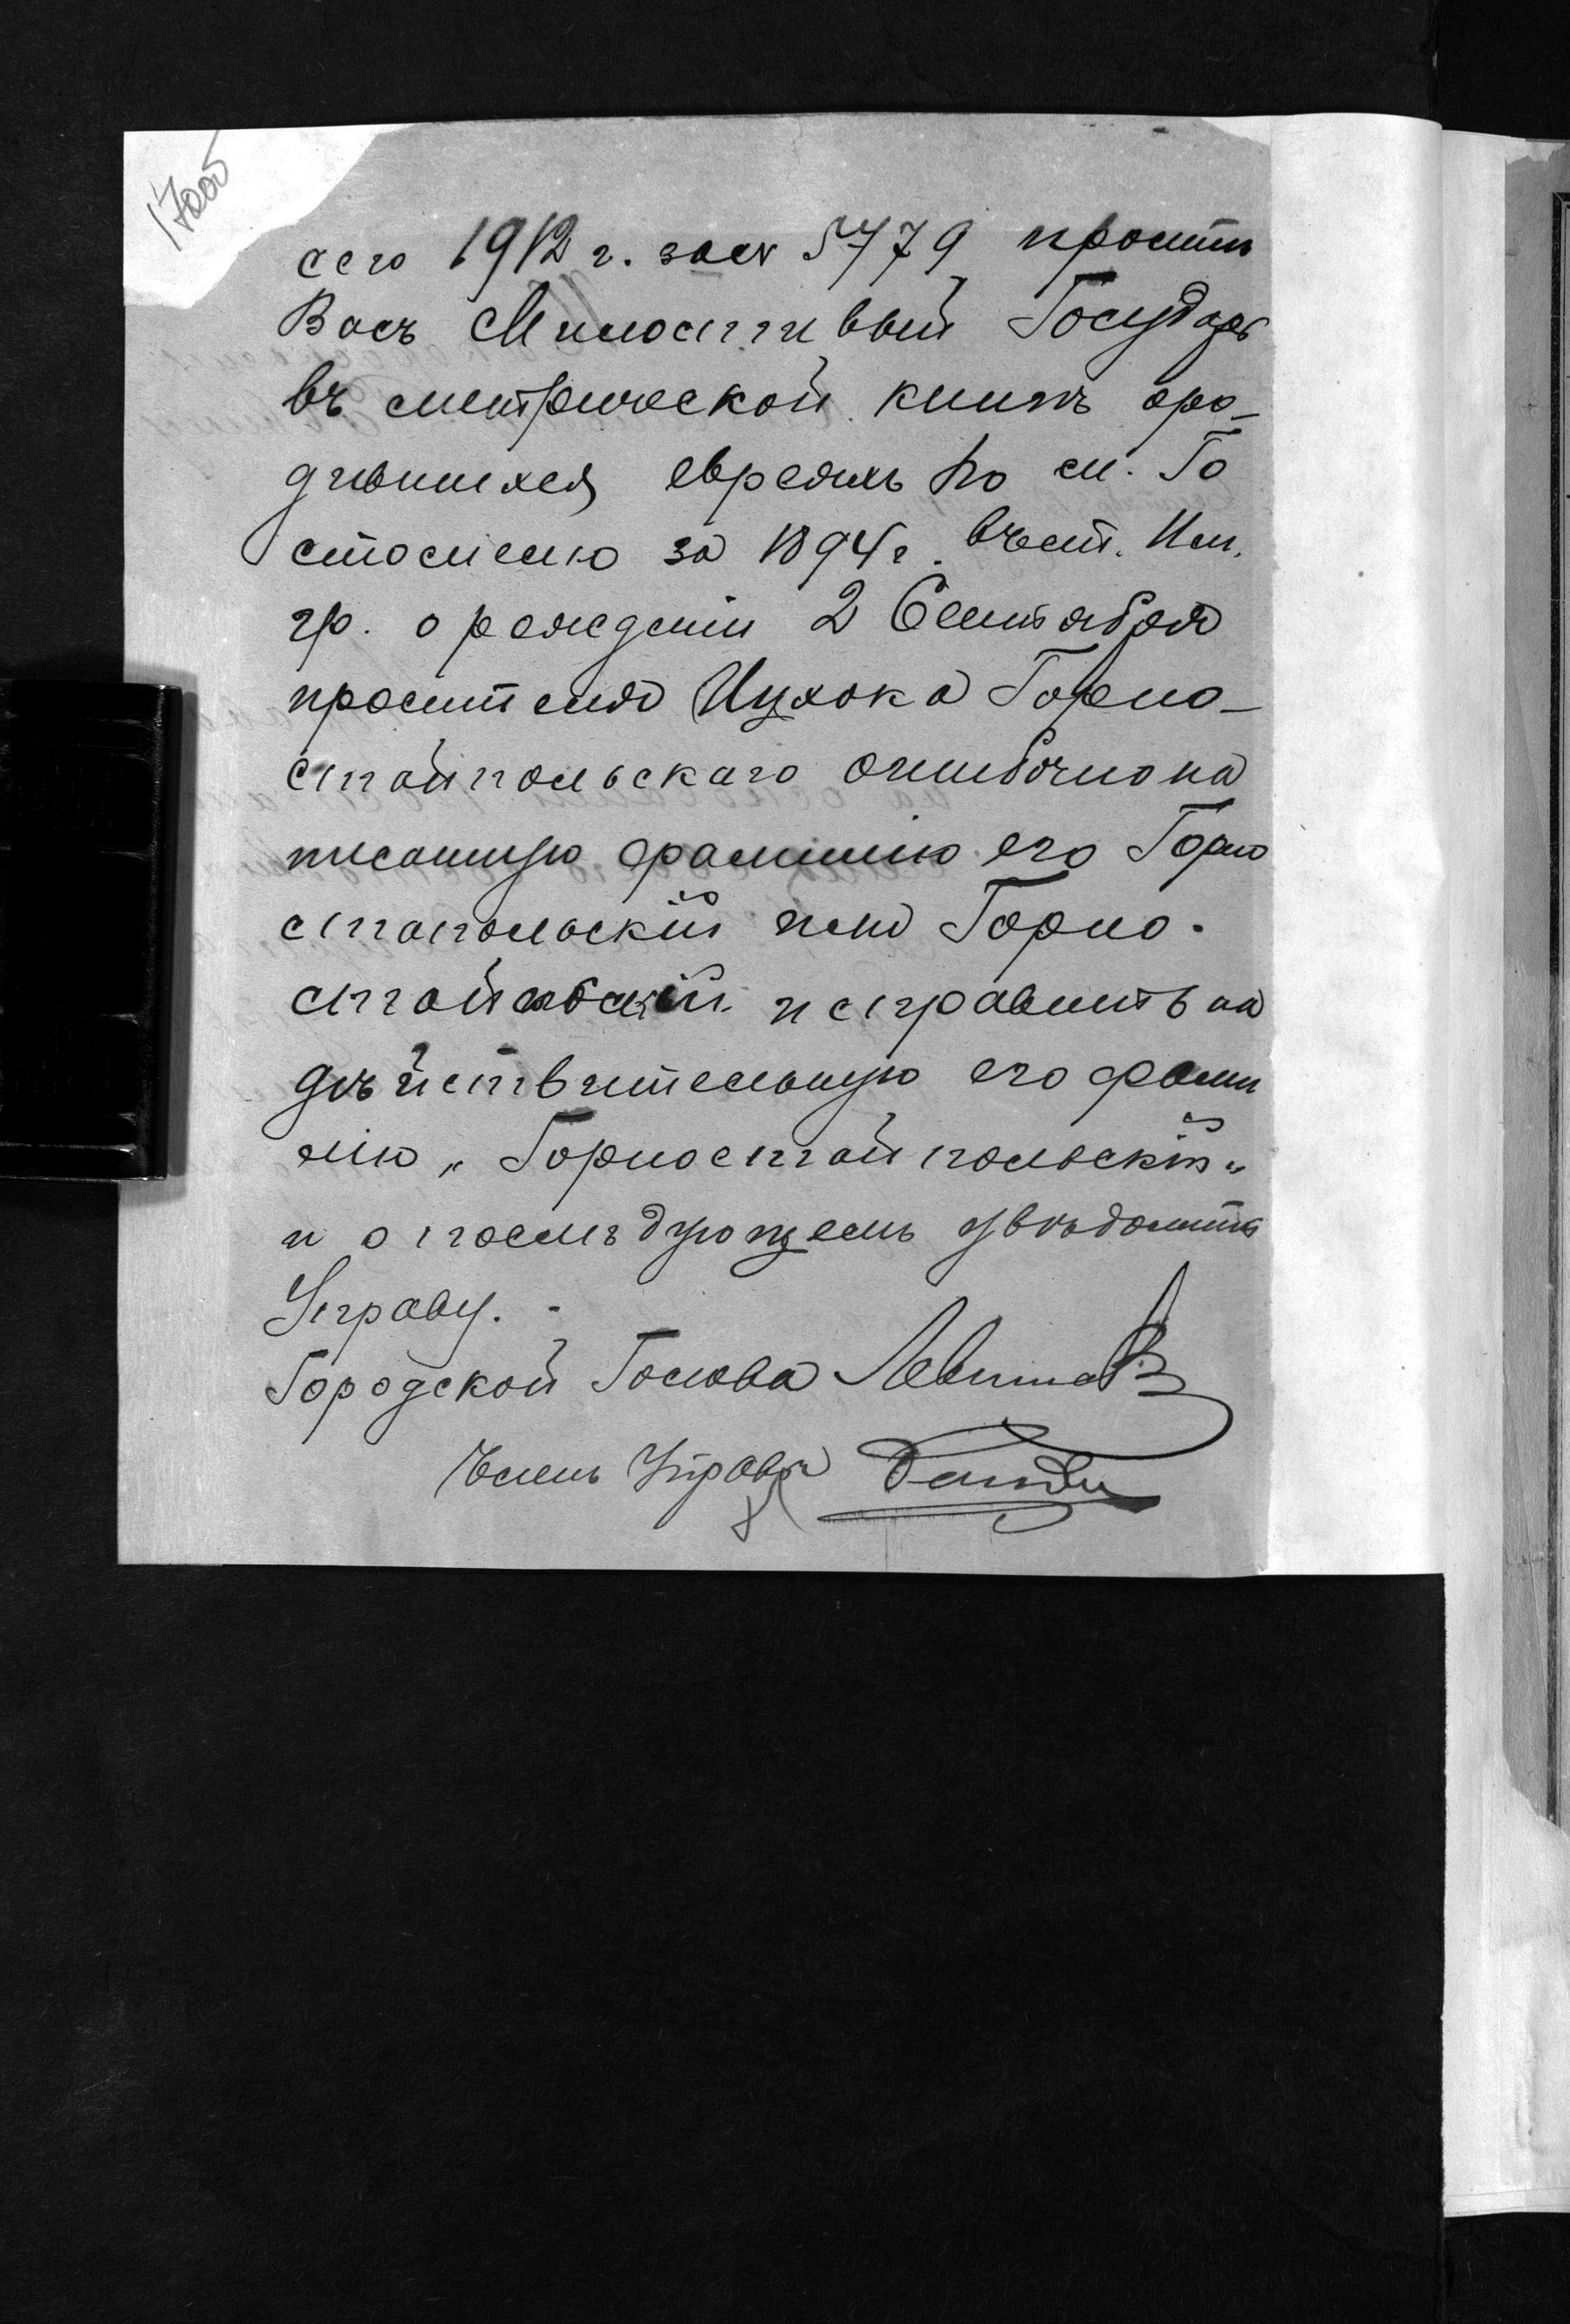 170об
сего 1912 г. за № 5779 проситъ
Васъ Милостивый Государь
въ метрической книгѣ о ро-
дившихся евреяхъ по м. Го
стомелю за 1894 г. въ ст. Им.
гр. о рожденіи 2 Сентября
просителя Ицхока Горно-
стайпольскаго ошибочно на
писанную фамилію его Горно
стапольскій или Горно-
исправить на
дѣйствительную его фами
лію „Горностайпольскій"
и о послѣдующемъ увѣдомить
Управу.
Городской Голова
Членъ Управы